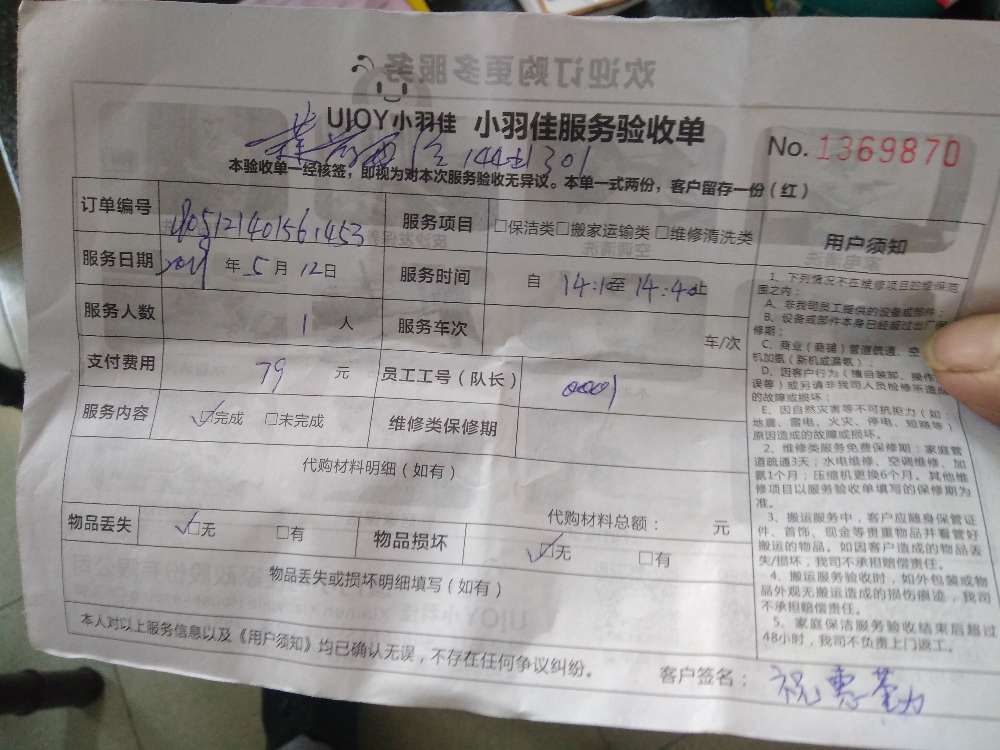 UJOY小羽佳 小羽佳服务验收单
No. 1369870
144 301
本验收单一经核签，即视为对本次服务验收无异议。本单一式两份，客户留存一份（红）
订单编号 服务项目 □保洁类□搬家运输类 □维修清洗类
服务日期 年 5 月 12 日 服务时间 自 14:1 至 14:40 止
服务人数 1 人 服务车次 车/次
支付费用 79 元 员工工号（队长） 0001
服务内容 ☑完成 □未完成 维修类保修期
代购材料明细（如有）
代购材料总额： 元
物品丢失 ☑无 □有 物品损坏 ☑无 □有
物品丢失或损坏明细填写（如有）
本人对以上服务信息以及《用户须知》均已确认无误，不存在任何争议纠纷。
客户签名： 祝惠
用户须知
1、下列情况不在维修项目的维保范
围之内：
A、非我司员工提供的设备或部件；
B、设备或部件本身已经超过出厂
修期；
C、商业（商铺）管道疏通、空
机加氨（新机或漏氨）
D、因客户行为（擅自装卸、操作
误等）或另请非我司人员检修所造成
的故障或损坏；
E、因自然灾害等不可抗拒力（如：
地震、雷电、火灾、停电、短路等）
原因造成的故障或损坏。
2、维修类服务免费保修期：家庭管
道疏通3天；水电维修、空调维修、加
氨1个月；压缩机更换6个月。其他维
修项目以服务验收单填写的保修期为
准。
3、搬运服务中，客户应随身保管证
件、首饰、现金等贵重物品并看管好
搬运的物品。如因客户造成的物品丢
失/损坏，我司不承担赔偿责任。
4、搬运服务验收时，如外包装或物
品外观无搬运造成的损伤痕迹，我司
不承担赔偿责任。
5、家庭保洁服务验收结束后超过
48小时，我司不负责上门返工。
欢迎订购更多服务